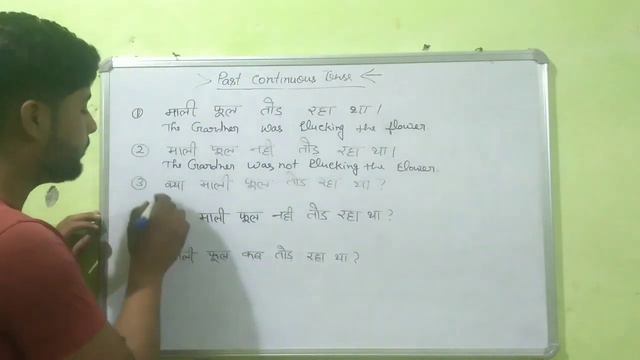 Past Continuous Tense
① माली फूल तोड रहा था।
The Gardner was plucking the flower.
② माली फूल नही तोड रहा था।
The Gardner was not plucking the flower.
③ क्या माली फूल तोड रहा था?
माली फूल नही तोड रहा था?
फूल कब तोड रहा था?